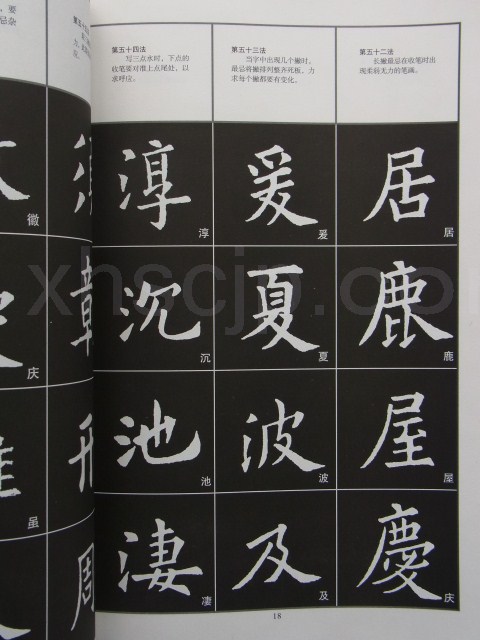 第五十二法
长撇最忌在收笔时出
现柔弱无力的笔画。
居
居
鹿
鹿
屋
屋
慶
庆
第五十三法
当字中出现几个撇时，
最忌将撇排列整齐死板。力
求每个撇都要有变化。
爰
爰
夏
夏
波
波
及
及
第五十四法
写三点水时，下点的
收笔要对准上点尾处，以
求呼应。
淳
淳
沉
沉
池
池
凄
凄
18
徽
庆
虽